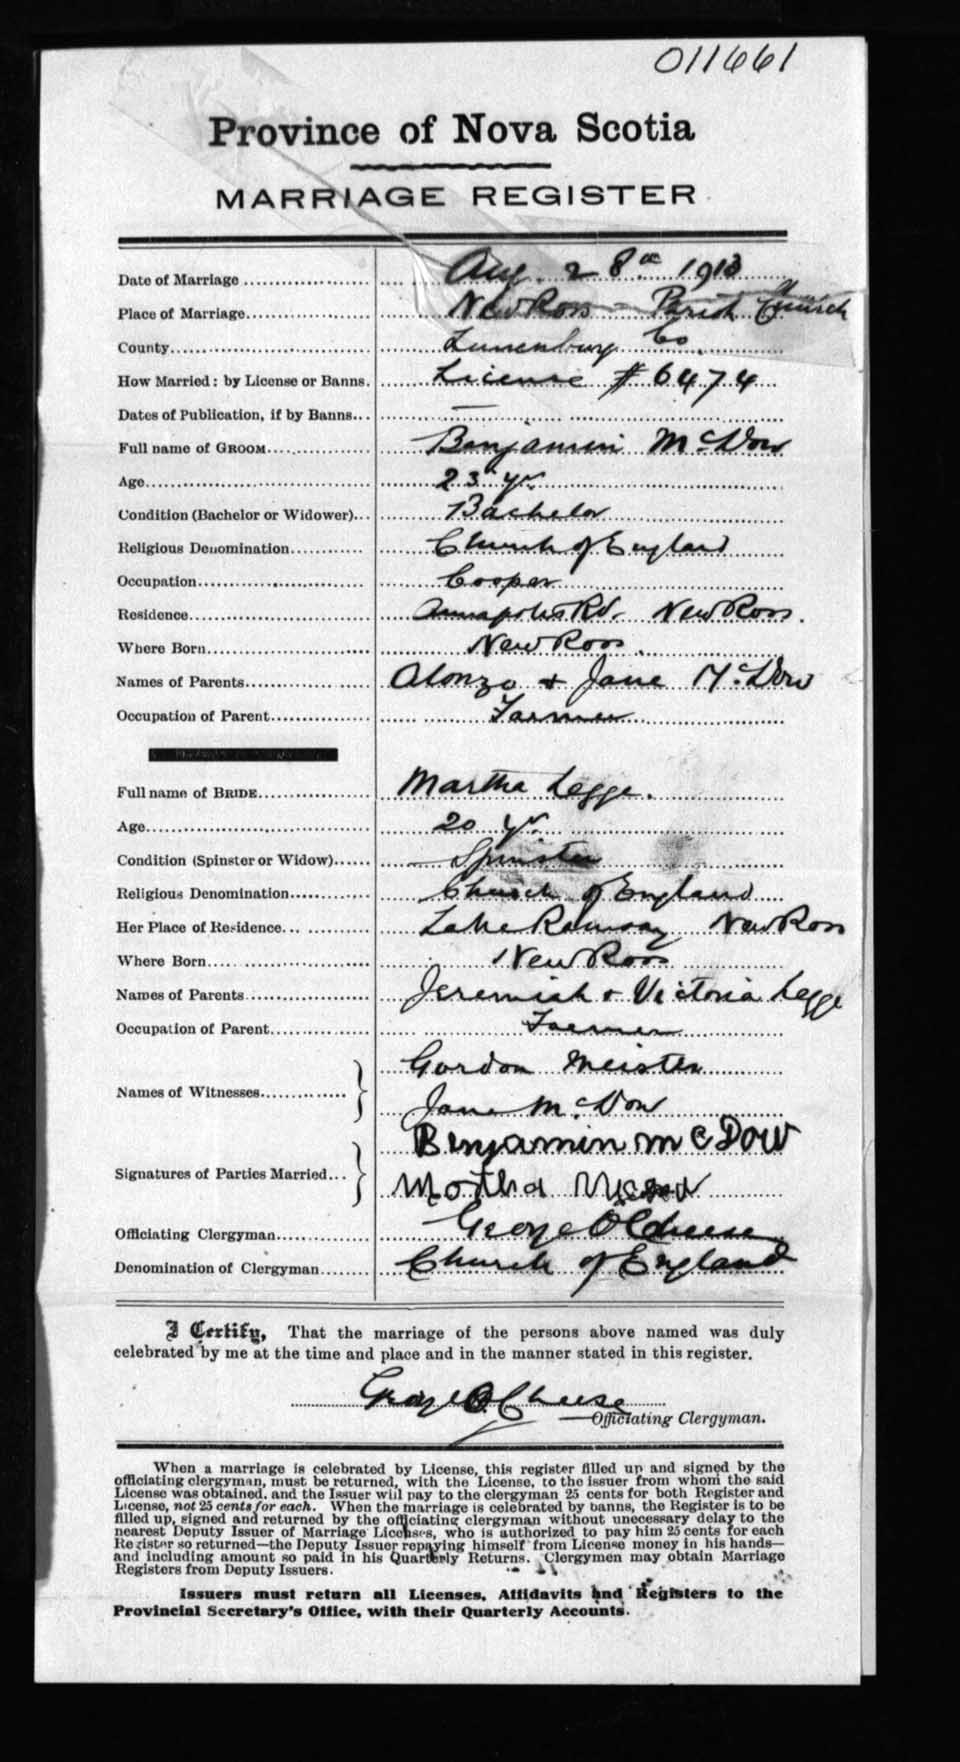 011661
Province of Nova Scotia
MARRIAGE REGISTER
Date of Marriage Aug. 28th 1913
Place of Marriage New Ross - Parish Church
County Lunenburg Co.
How Married: by License or Banns. License # 6474
Dates of Publication, if by Banns —
Full name of GROOM Benjamin McDow
Age 23 yr
Condition (Bachelor or Widower) Bachelor
Religious Denomination Church of England
Occupation Cooper
Residence Annapolis Rd. New Ross.
Where Born New Ross.
Names of Parents Alonzo + Jane McDow
Occupation of Parent Farmer
Full name of BRIDE Martha Legge.
Age 20 yr
Condition (Spinster or Widow) Spinster
Religious Denomination Church of England
Her Place of Residence Lake Ramsay New Ross
Where Born New Ross
Names of Parents Jeremiah + Victoria Legge
Occupation of Parent Farmer
Names of Witnesses Gordon Meister
Jane McDow
Signatures of Parties Married Benjamin mcDow
Martha
Officiating Clergyman George O Cheese
Denomination of Clergyman Church of England
I Certify, That the marriage of the persons above named was duly
celebrated by me at the time and place and in the manner stated in this register.
George O. Cheese
Officiating Clergyman.
When a marriage is celebrated by License, this register filled up and signed by the
officiating clergyman, must be returned, with the License, to the issuer from whom the said
License was obtained, and the Issuer will pay to the clergyman 25 cents for both Register and
License, not 25 cents for each. When the marriage is celebrated by banns, the Register is to be
filled up, signed and returned by the officiating clergyman without unecessary delay to the
nearest Deputy Issuer of Marriage Licenses, who is authorized to pay him 25 cents for each
Register so returned—the Deputy Issuer repaying himself from License money in his hands—
and including amount so paid in his Quarterly Returns. Clergymen may obtain Marriage
Registers from Deputy Issuers.
Issuers must return all Licenses, Affidavits and Registers to the
Provincial Secretary's Office, with their Quarterly Accounts.